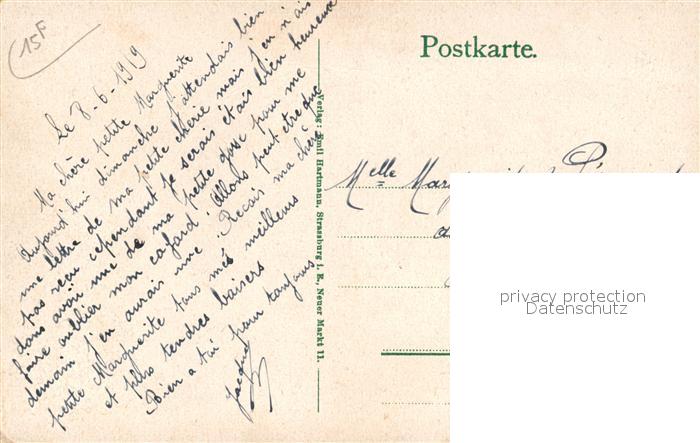 15F
Le 8-6-1919
Ma chère petite Marguerite
Aujourd'hui dimanche j'attendais bien
une lettre de ma petite chérie mais j'en n'ais
pas reçu cependant je serais étais bien heureux
dans avoir une de ma petite gosse pour me
faire oublier mon cafard. Allons peut etre que
demain j'en aurais une. Recois ma chère
petite Marguerite tous mes meilleurs
et plus tendres baisers
Bien a toi pour toujours
Jacques
Verlag: Emil Hartmann, Strassburg i. E., Neuer Markt 11.
Postkarte.
Melle
privacy protection
Datenschutz